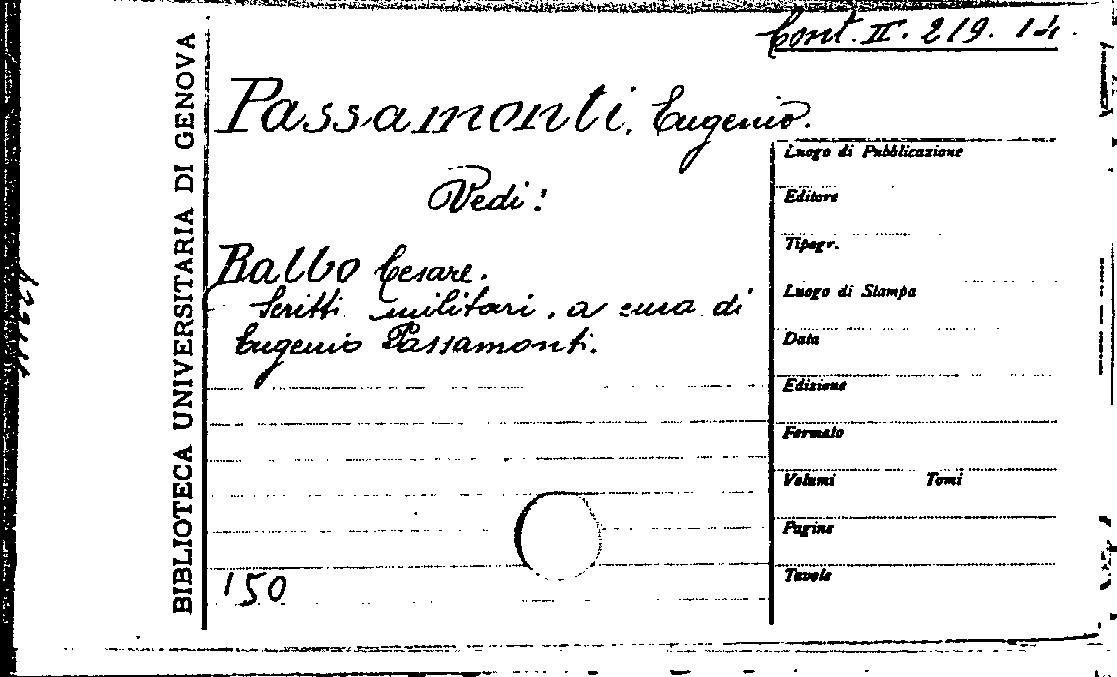 Cont. II. 219. 14.
BIBLIOTECA UNIVERSITARIA DI GENOVA
Passamonti, Eugenio.
Vedi:
Balbo Cesare.
Scritti militari, a cura di
Eugenio Passamonti.
150
Luogo di Pubblicazione
Editore
Tipogr.
Luogo di Stampa
Data
Edizione
Formato
Volumi Tomi
Pagine
Tavole